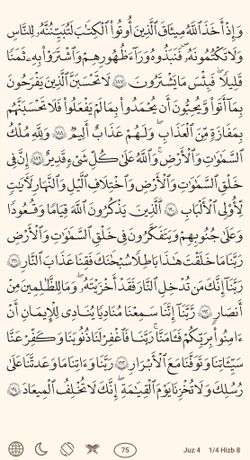 وَإِذْ أَخَذَ ٱللَّهُ مِيثَٰقَ ٱلَّذِينَ أُوتُوا۟ ٱلْكِتَٰبَ لَتُبَيِّنُنَّهُۥ لِلنَّاسِ
وَلَا تَكْتُمُونَهُۥ فَنَبَذُوهُ وَرَآءَ ظُهُورِهِمْ وَٱشْتَرَوْا۟ بِهِۦ ثَمَنًا
قَلِيلًا ۖ فَبِئْسَ مَا يَشْتَرُونَ ١٨٧ لَا تَحْسَبَنَّ ٱلَّذِينَ يَفْرَحُونَ
بِمَآ أَتَوا۟ وَّيُحِبُّونَ أَن يُحْمَدُوا۟ بِمَا لَمْ يَفْعَلُوا۟ فَلَا تَحْسَبَنَّهُم
بِمَفَازَةٍ مِّنَ ٱلْعَذَابِ ۖ وَلَهُمْ عَذَابٌ أَلِيمٌ ١٨٨ وَلِلَّهِ مُلْكُ
ٱلسَّمَٰوَٰتِ وَٱلْأَرْضِ ۗ وَٱللَّهُ عَلَىٰ كُلِّ شَىْءٍ قَدِيرٌ ١٨٩ إِنَّ فِى
خَلْقِ ٱلسَّمَٰوَٰتِ وَٱلْأَرْضِ وَٱخْتِلَٰفِ ٱلَّيْلِ وَٱلنَّهَارِ لَءَايَٰتٍ
لِّأُو۟لِى ٱلْأَلْبَٰبِ ١٩٠ ٱلَّذِينَ يَذْكُرُونَ ٱللَّهَ قِيَٰمًا وَقُعُودًا
وَعَلَىٰ جُنُوبِهِمْ وَيَتَفَكَّرُونَ فِى خَلْقِ ٱلسَّمَٰوَٰتِ وَٱلْأَرْضِ
رَبَّنَا مَا خَلَقْتَ هَٰذَا بَٰطِلًا سُبْحَٰنَكَ فَقِنَا عَذَابَ ٱلنَّارِ ١٩١
رَبَّنَآ إِنَّكَ مَن تُدْخِلِ ٱلنَّارَ فَقَدْ أَخْزَيْتَهُۥ ۖ وَمَا لِلظَّٰلِمِينَ مِنْ
أَنصَارٍ ١٩٢ رَّبَّنَآ إِنَّنَا سَمِعْنَا مُنَادِيًا يُنَادِى لِلْإِيمَٰنِ أَنْ
ءَامِنُوا۟ بِرَبِّكُمْ فَـَٔامَنَّا ۚ رَبَّنَا فَٱغْفِرْ لَنَا ذُنُوبَنَا وَكَفِّرْ عَنَّا
سَيِّـَٔاتِنَا وَتَوَفَّنَا مَعَ ٱلْأَبْرَارِ ١٩٣ رَبَّنَا وَءَاتِنَا مَا وَعَدتَّنَا عَلَىٰ
رُسُلِكَ وَلَا تُخْزِنَا يَوْمَ ٱلْقِيَٰمَةِ ۗ إِنَّكَ لَا تُخْلِفُ ٱلْمِيعَادَ ١٩٤
75 Juz 4 1/4 Hizb 8